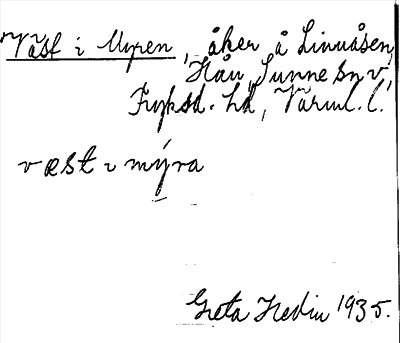 Väst i Myren, åker å Linnåsen,
Hån, Sunne sn v,
Fryksd. hd, Värml. l.
væst i mýra
Greta Hedin 1935.